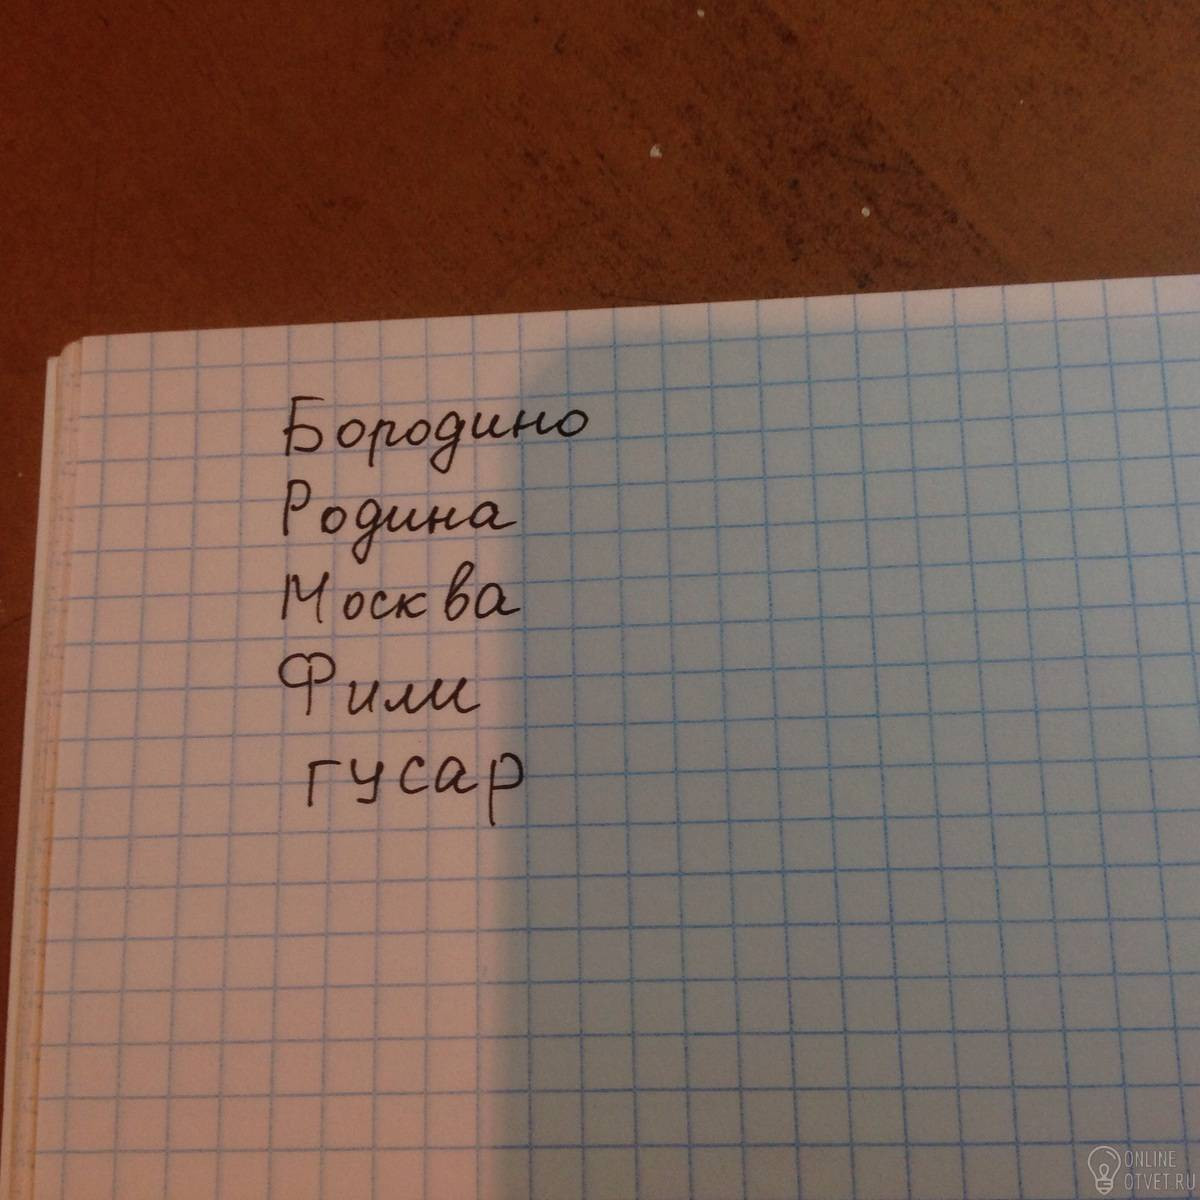 Бородино
Родина
Москва
Фили
гусар
ONLINE
OTVET.RU